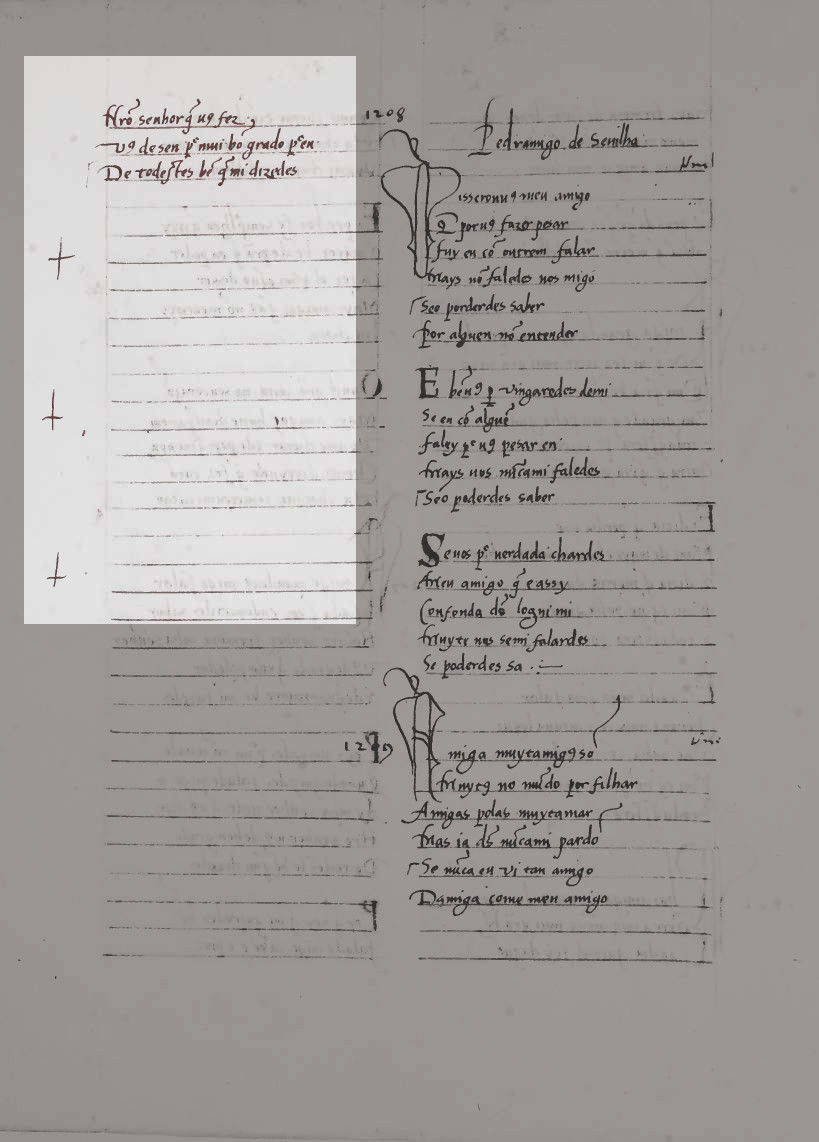 Nr̃o senhor q̃ uꝯ fez,
uꝯ de sen p̃ mui bõ grado p̃ en
De todestes bẽ q̃ mi dizedes
1208
Pedramigo de Seuilha
isseronuꝯ meu amigo
Q̃ poruꝯ fazer pesar
fuy eu cõ outrem falar
Mays nõ faledes uos migo
Seo poderdes saber
Por alguen nõ entender
E benuꝯ ꝑ uingaredes demi
Se eu cõ alguẽ
faley p̃ uꝯ pesar en
Mays uos nũcami faledes
Seo poderdes saber
Seuos p̃ uerdada chardes
Meu amigo q̃ e assy
Confonda ds̃ logui mi
Muyte uos semi falardes
Se poderdes sa
miga muytamigꝯ so
Muytꝯ no mũdo por filhar
Amigas polas muytamar
Mas ia ds̃ nũcami pardo
Se nũca eu ui tan amigo
Damiga come meu amigo